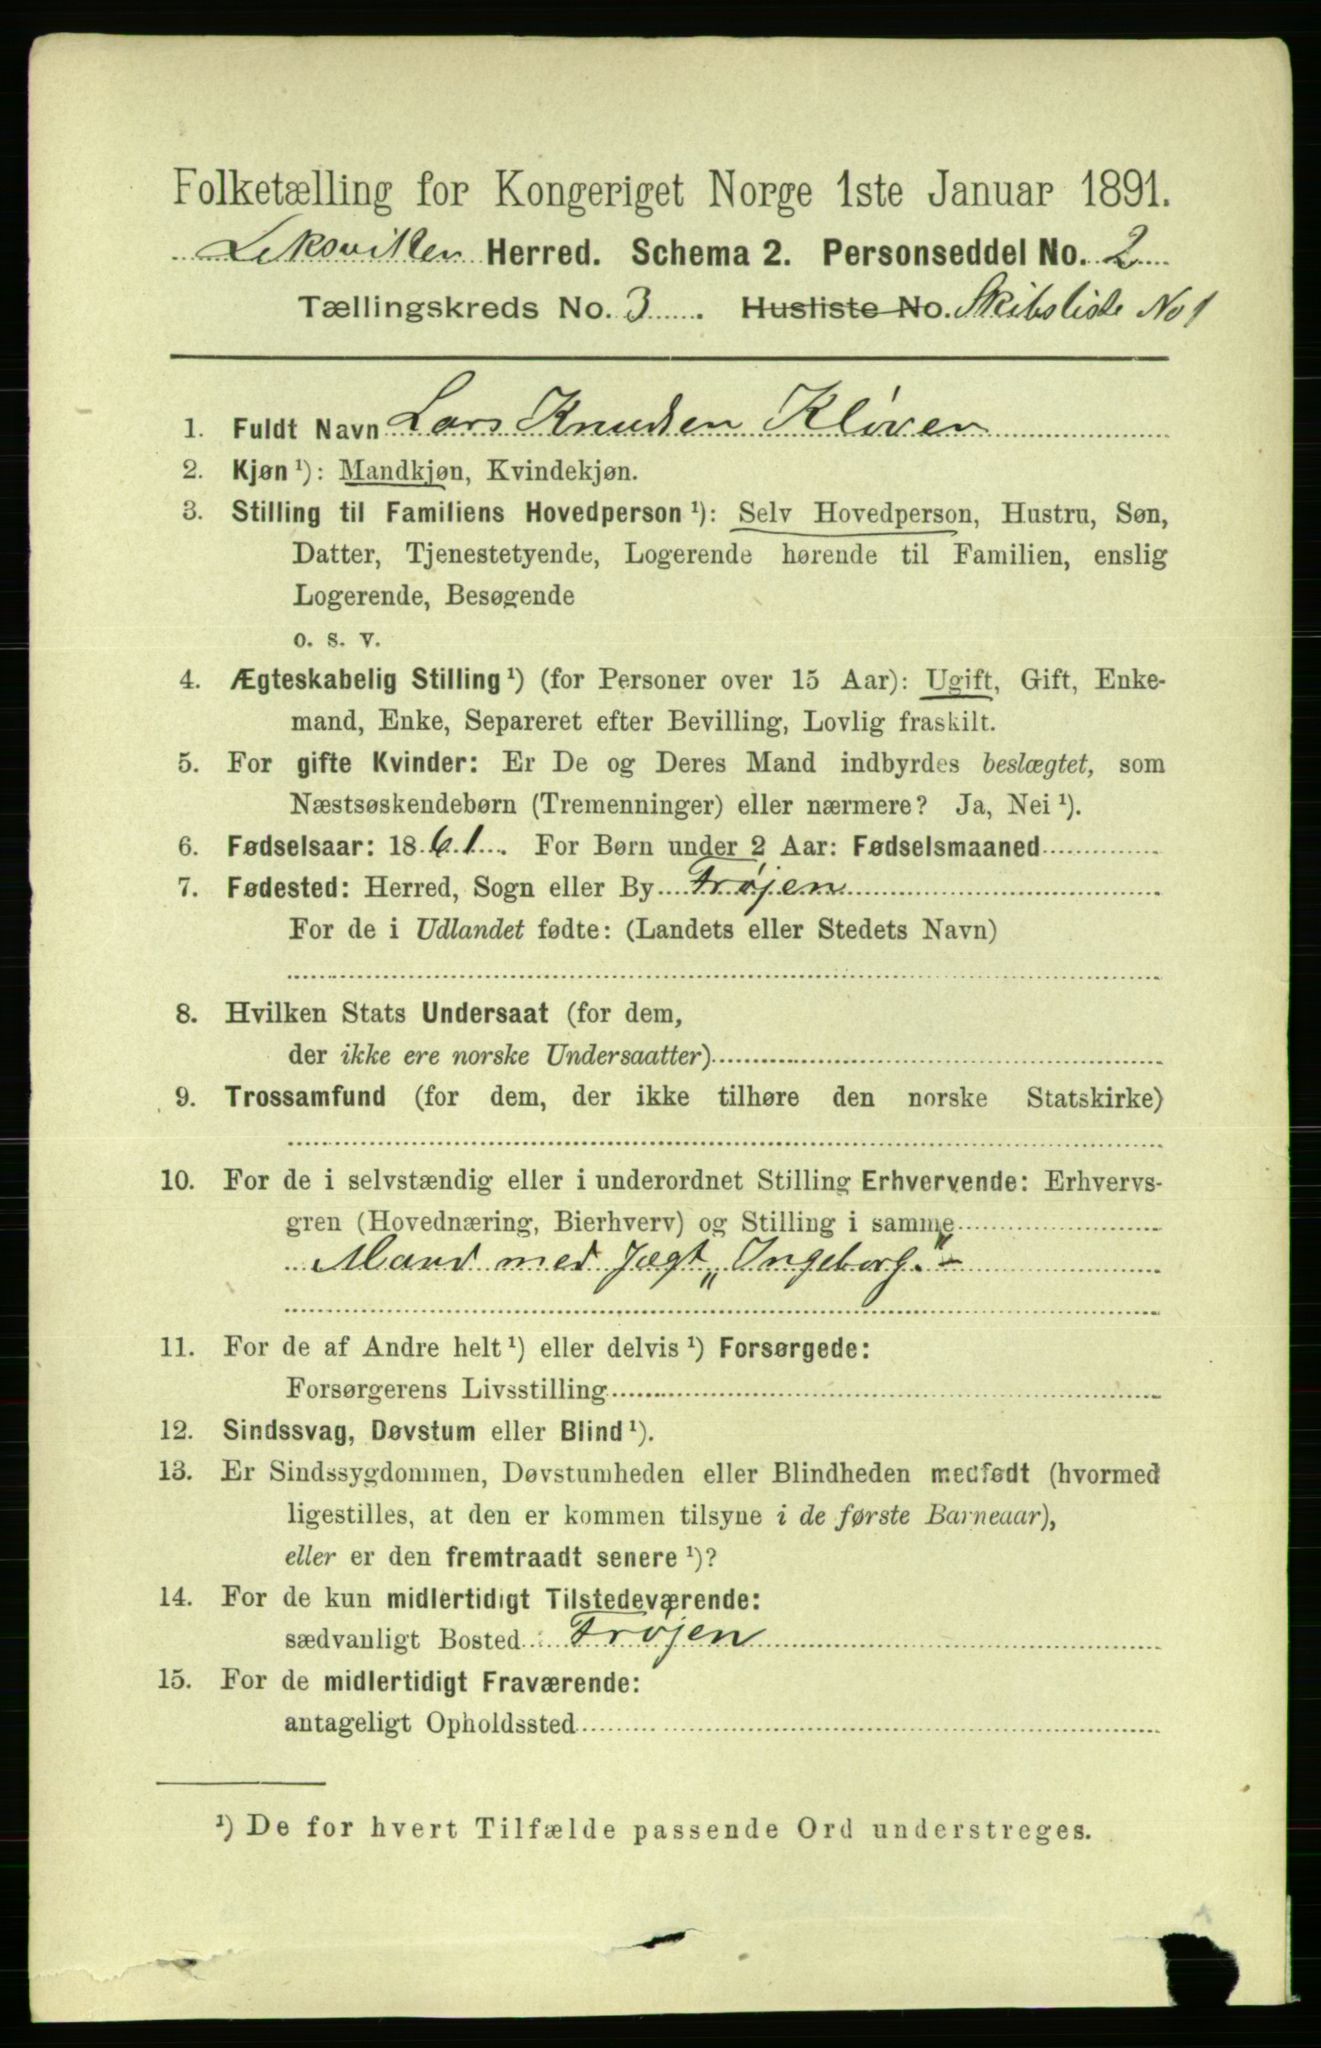 Folketælling for Kongeriget Norge 1ste Januar 1891.
Leksviken Herred. Schema 2. Personseddel No. 2
Tællingskreds No. 3. Husliste No. Skibsliste No 1
1. Fuldt Navn Lars Knudsen Kløven
2. Kjøn ¹): Mandkjøn, Kvindekjøn.
3. Stilling til Familiens Hovedperson ¹): Selv Hovedperson, Hustru, Søn,
Datter, Tjenestetyende, Logerende hørende til Familien, enslig
Logerende, Besøgende
o. s. v.
4. Ægteskabelig Stilling ¹) (for Personer over 15 Aar): Ugift, Gift, Enke-
mand, Enke, Separeret efter Bevilling, Lovlig fraskilt.
5. For gifte Kvinder: Er De og Deres Mand indbyrdes beslægtet, som
Næstsøskendebørn (Tremenninger) eller nærmere? Ja, Nei ¹).
6. Fødselsaar: 1861. For Børn under 2 Aar: Fødselsmaaned
7. Fødested: Herred, Sogn eller By Frøjen
For de i Udlandet fødte: (Landets eller Stedets Navn)
8. Hvilken Stats Undersaat (for dem,
der ikke ere norske Undersaatter)
9. Trossamfund (for dem, der ikke tilhøre den norske Statskirke)
10. For de i selvstændig eller i underordnet Stilling Erhvervende: Erhvervs-
gren (Hovednæring, Bierhverv) og Stilling i samme
Mand med Jægt „Ingeborg."-
11. For de af Andre helt ¹) eller delvis ¹) Forsørgede:
Forsørgerens Livsstilling
12. Sindssvag, Døvstum eller Blind ¹).
13. Er Sindssygdommen, Døvstumheden eller Blindheden medfødt (hvormed
ligestilles, at den er kommen tilsyne i de første Barneaar),
eller er den fremtraadt senere ¹)?
14. For de kun midlertidigt Tilstedeværende:
sædvanligt Bosted Frøjen
15. For de midlertidigt Fraværende:
antageligt Opholdssted
¹) De for hvert Tilfælde passende Ord understreges.